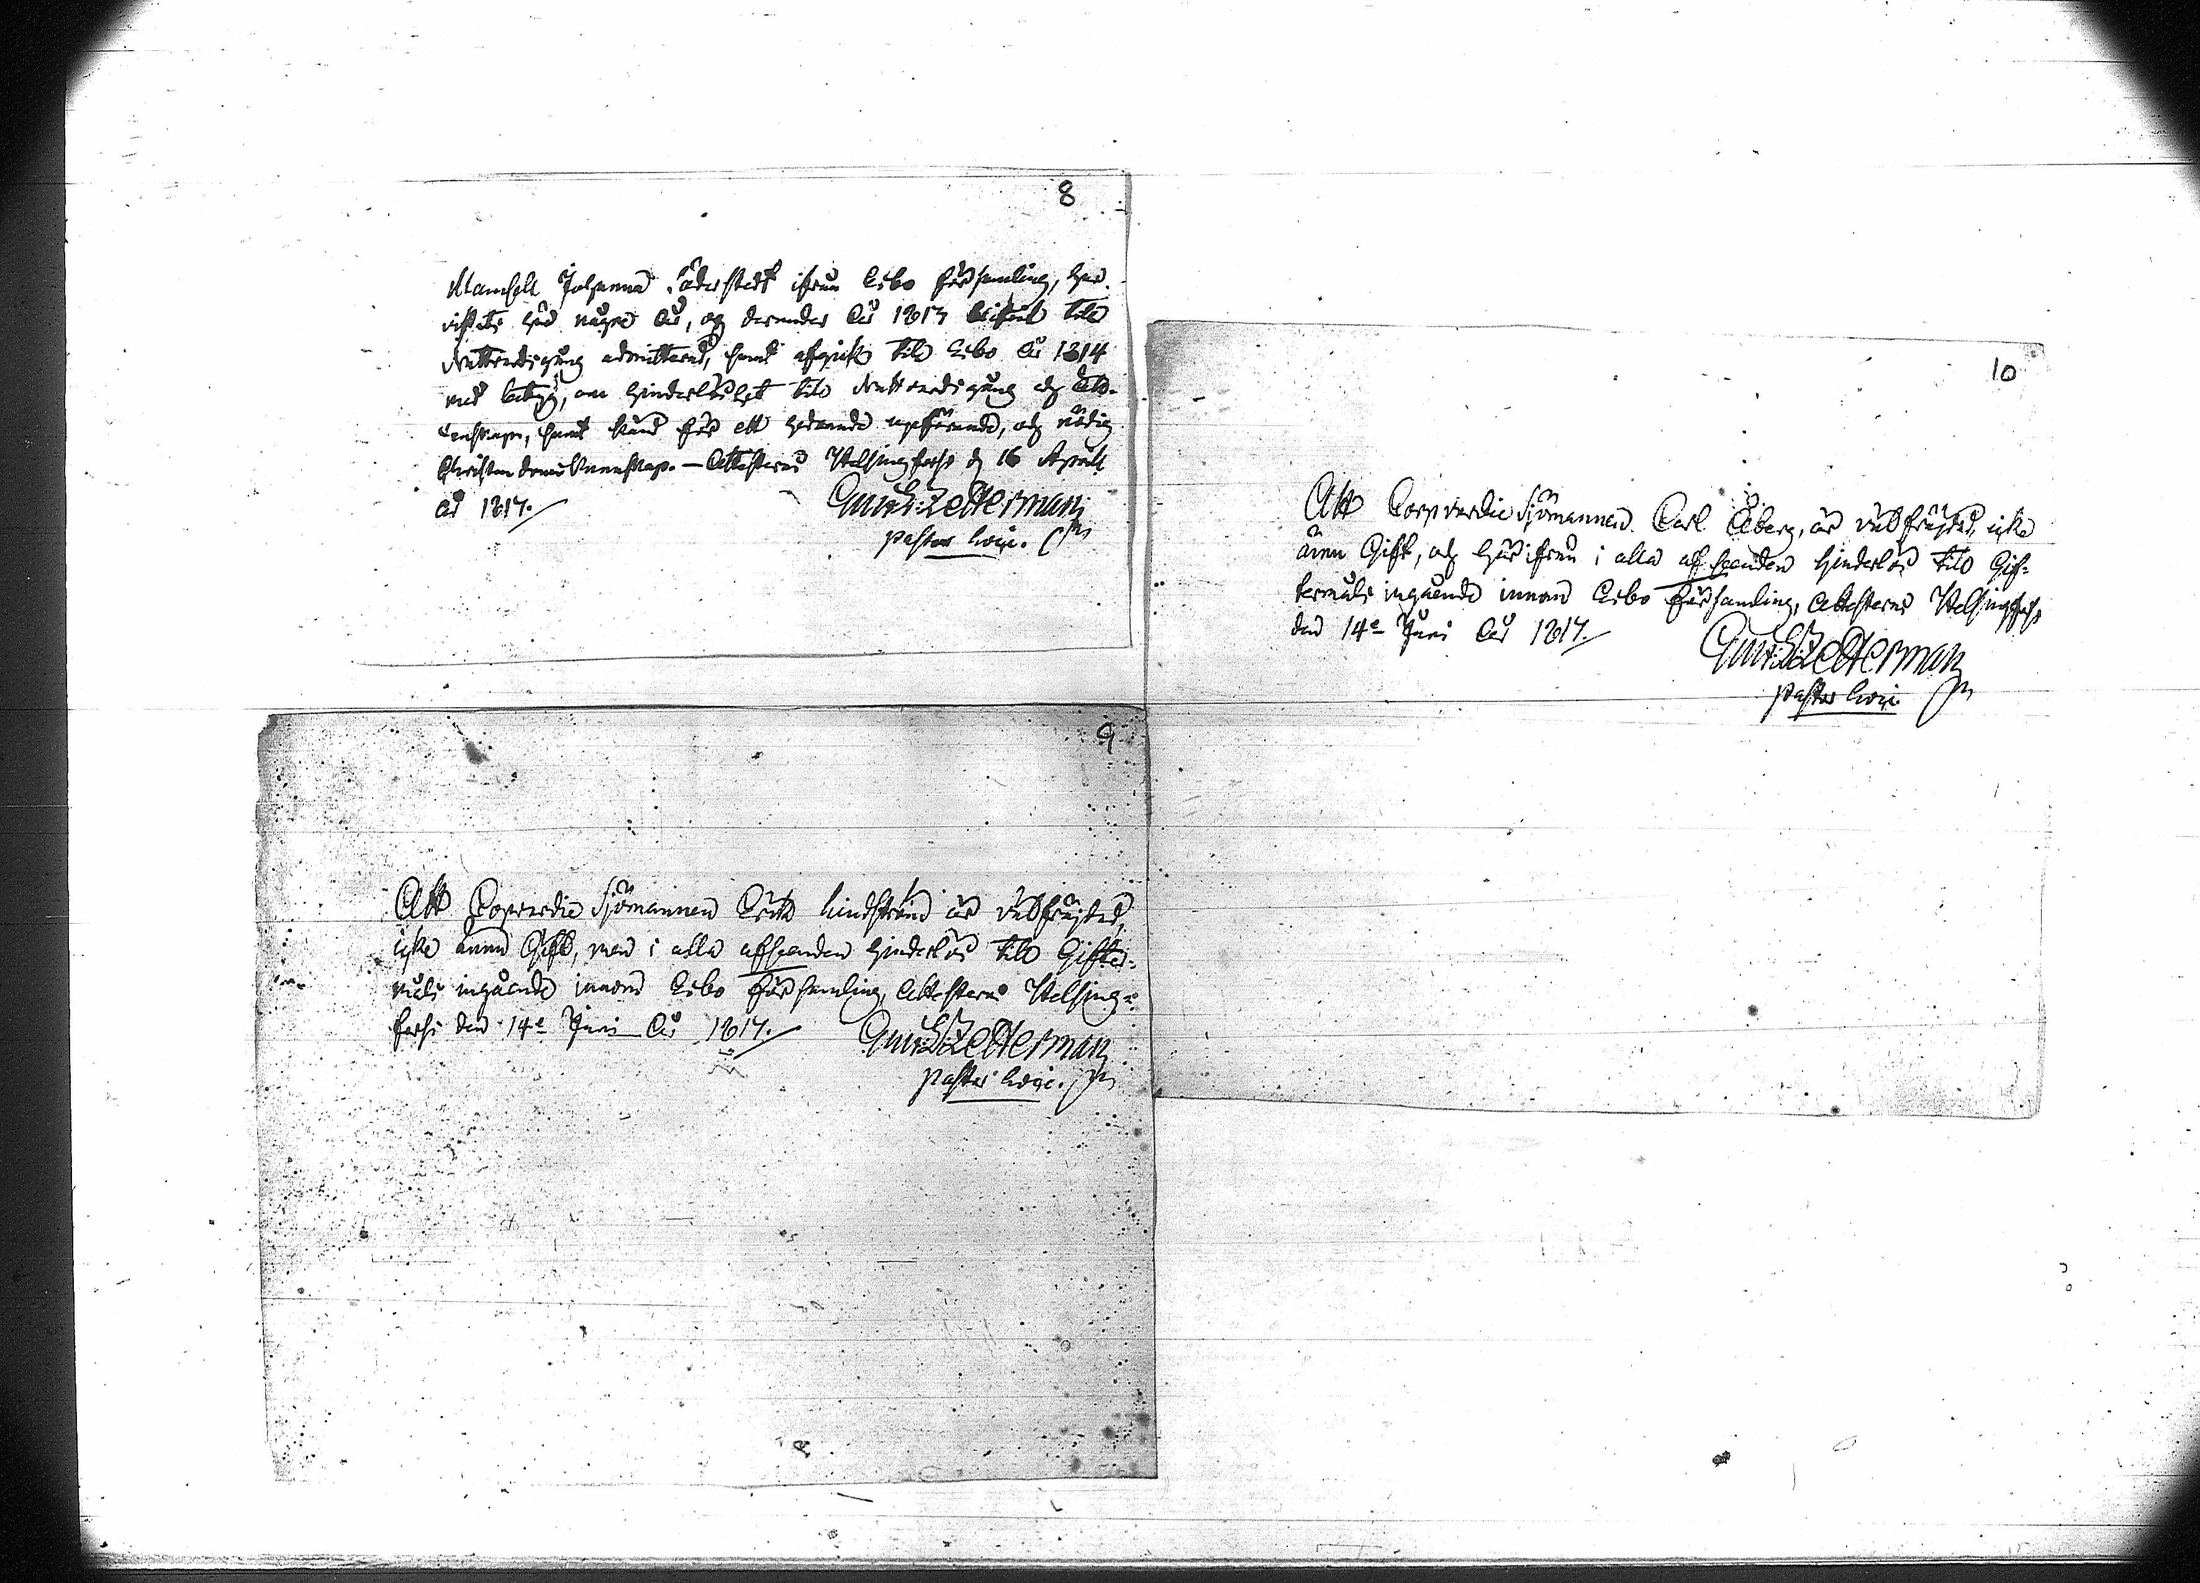 8
Mamsell Johanna Söderstedt ifrån Åbo församling, har
vistats här några år, och derunder år 1813 blifvit till
Nattvardsgång admitterad, samt afgick till Åbo år 1814
med betyg, om hinderlöshet till Nattvardsgång och Ächt-
enskap, samt känd för ett hedrande uppförande, och nödig
Christendoms kunskap. — Attesteras Helsingfors d 16 April
år 1817.
Gust: Zetterman
Pastor Loci.
10
Att Coopverdie Sjömannen Carl Åberg, är välfrejdad, icke
ännu Gift, och härifrån i alla afseenden hinderlös till Gif-
termåls ingående innom Åbo församling, attesteras Helsingfors
den 14e Juni år 1817.
Zetterman
Pastor Loci.
9
Att Coopverdie Sjömannen Erik Lindström är välfrejdad,
icke ännu Gift, men i alla afseenden hinderlös till Gifter-
måls ingående innom Åbo församling, attesteras Helsing-
fors den 14e Juni år 1817.
Zetterman
Pastor Loci.